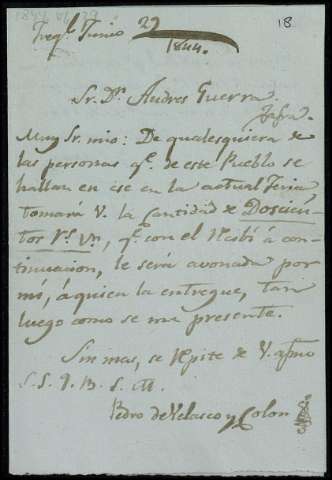 1844-VI-29
18
Freg.l Junio 29
1844.
Sr. Dn. Andres Guerra
Zafra.
Muy Sr. mio: De qualesquiera de
las personas q.e de este Pueblo se
hallan en ese en la actual Feria,
tomará V. la Cantidad de Doscien-
tos rs. vn, q.e con el Recibí á con-
tinuacion, le será avonada por
mí, á quien la entregue, tan
luego como se me presente.
Sin mas, se repite de V. afmo
S. S. Q. B. S. M.
Pedro de Velasco y Colon